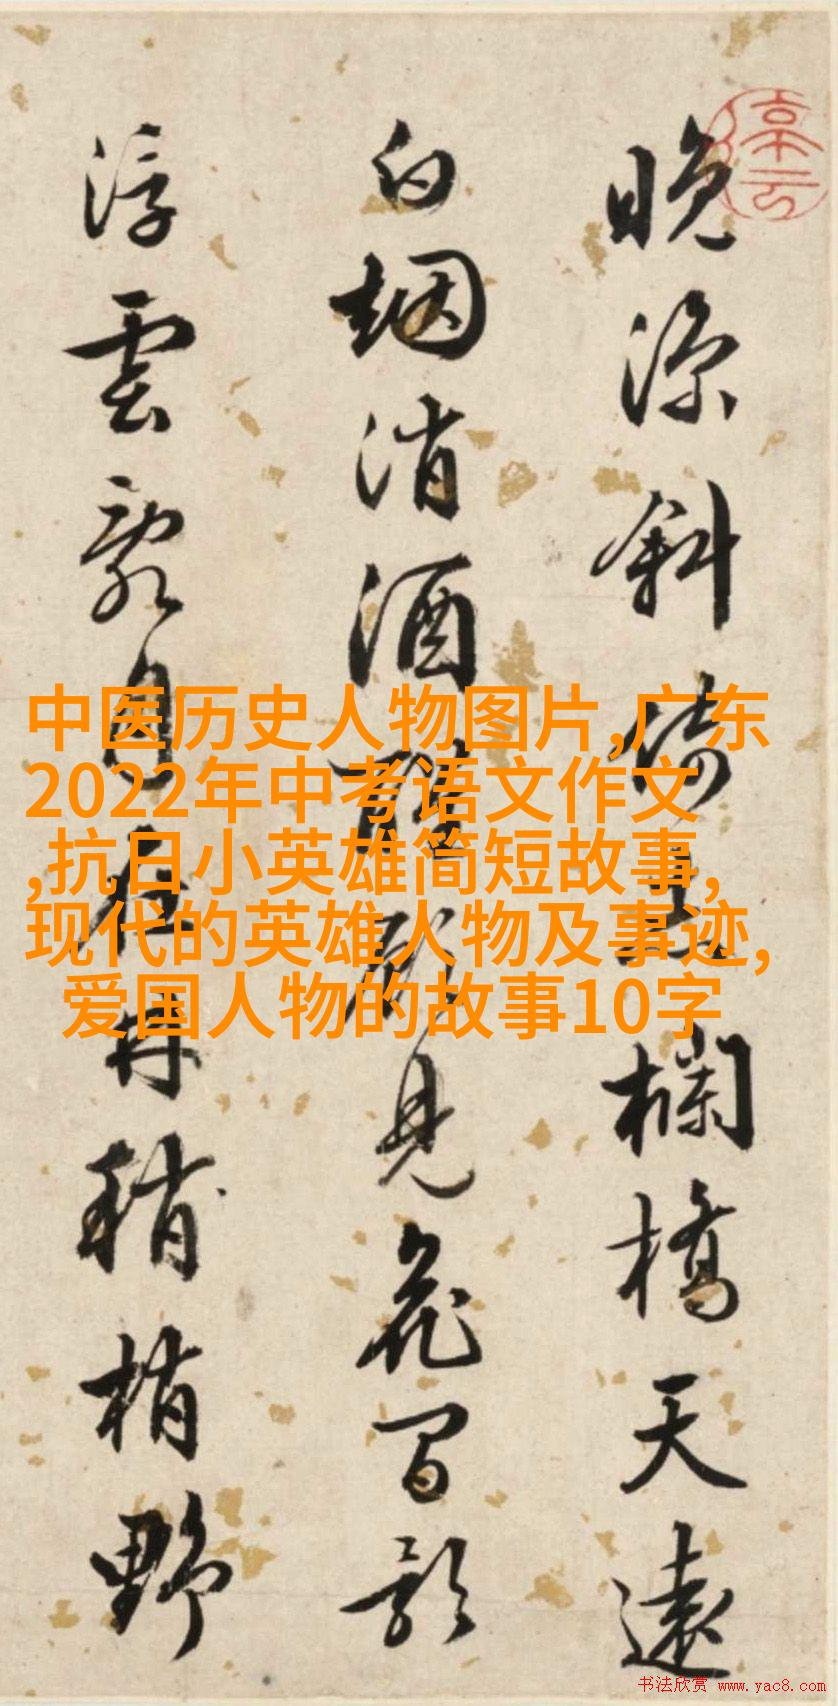 停云
晚涼斜倚欄橋天遠
白烟消酒醒見花間影
浮雲月在林稍梢野
中医历史人物图片,广东
2022年中考语文作文
,抗日小英雄简短故事,
现代的英雄人物及事迹,
爱国人物的故事10字
书法欣赏 www.yac8.com